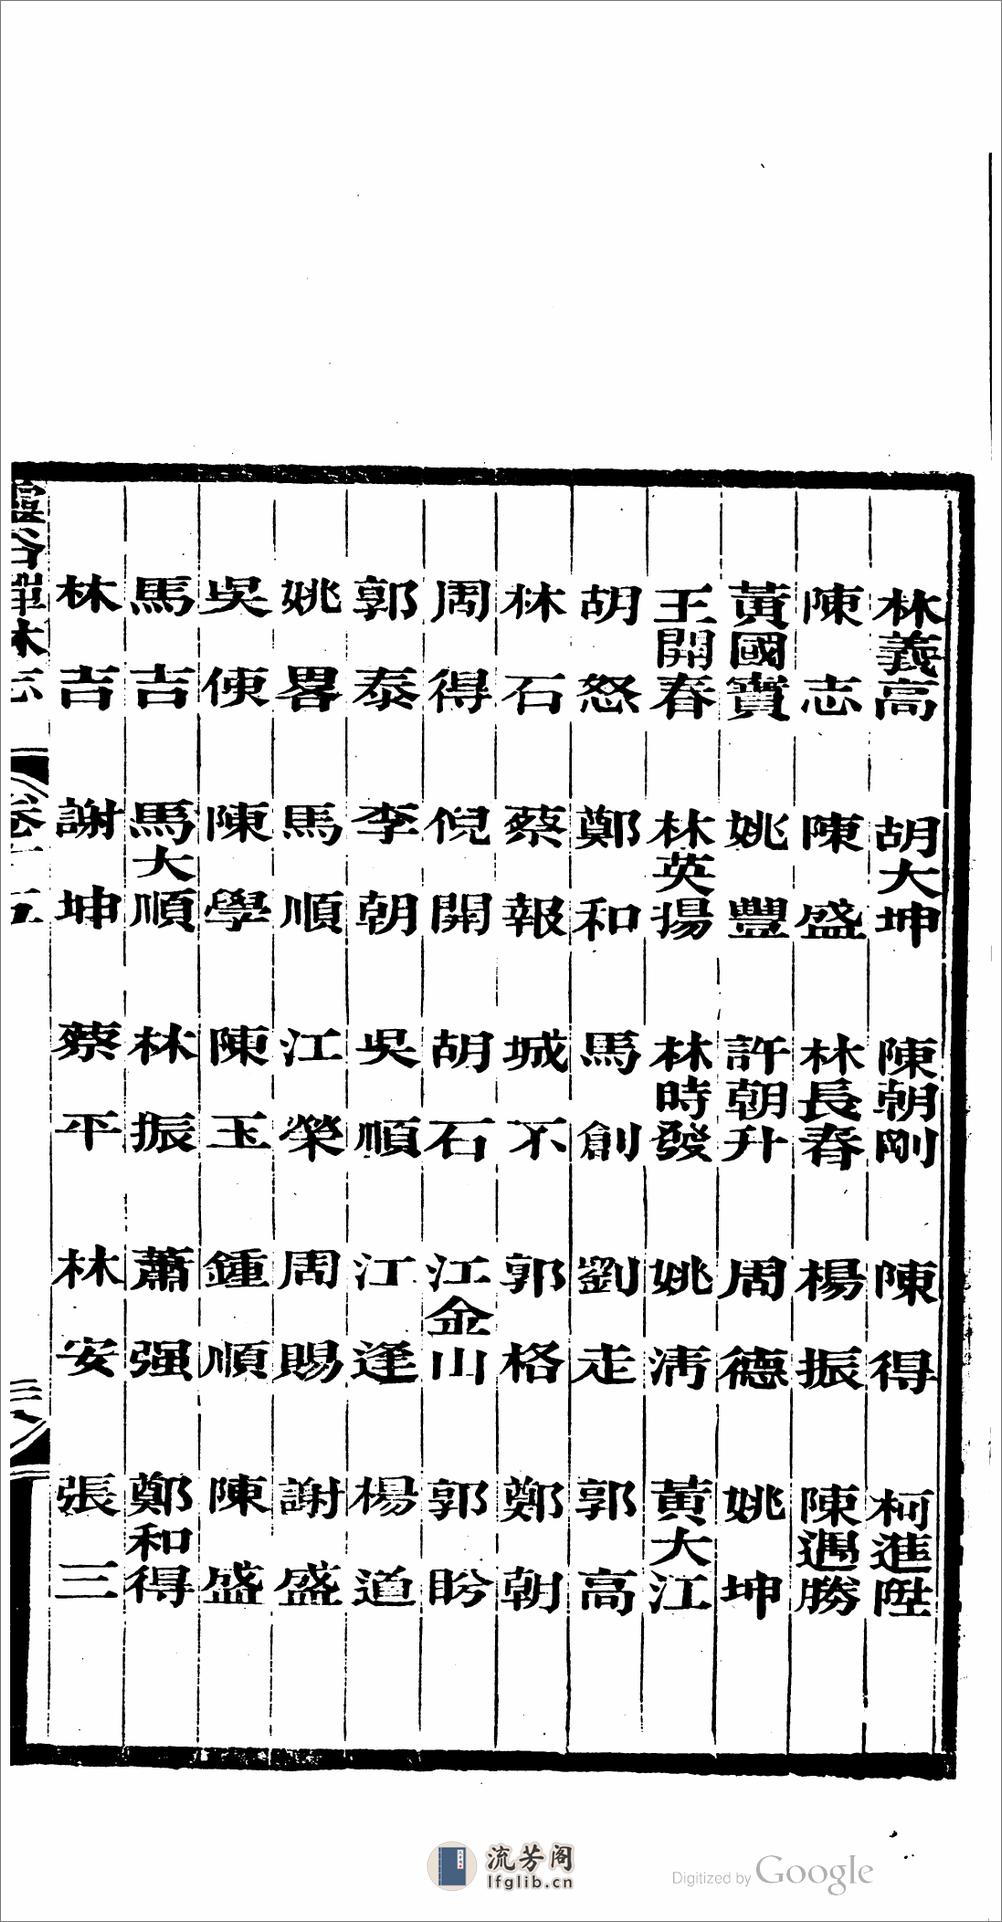 林義高 胡大坤 陳朝剛 陳得 柯進陞
陳志 陳盛 林長春 楊振 陳遇勝
黃國寶 姚豐 許朝升 周德 姚坤
王開春 林英揚 林時發 姚清 黃大江
胡怒 鄭和 馬創 劉走 郭高
林石 蔡報 城不 郭格 鄭朝
周得 倪開 胡石 江金山 郭盻
郭泰 李朝 吳順 江逢 楊道
姚畧 馬順 江榮 周賜 謝盛
吳使 陳學 陳玉 鍾順 陳盛
馬吉 馬大順 林振 蕭强 鄭和得
林吉 謝坤 蔡平 林安 張三
靈谷禪林志 卷十五 三
流芳阁
lfglib.cn
Digitized by Google